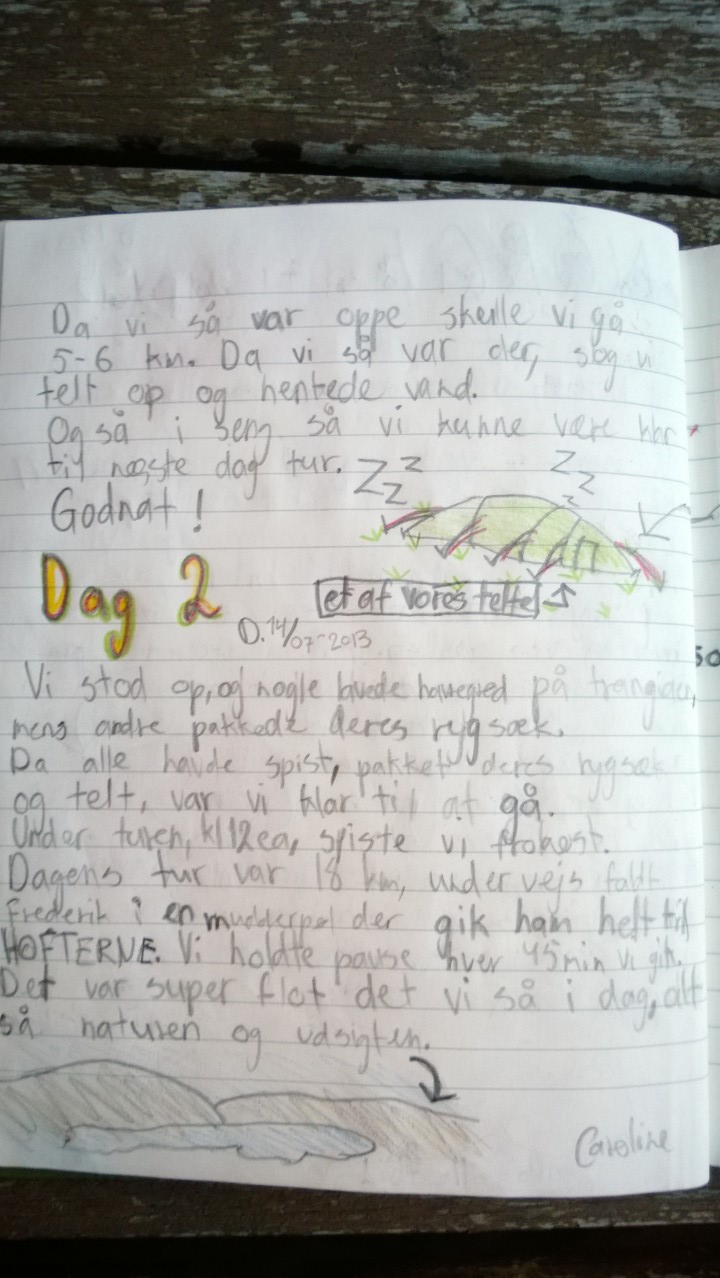 Da vi så var oppe skulle vi gå
5-6 km. Da vi så var der, slog vi
telt op og hentede vand.
Også i seng så vi kunne være klar
til næste dag tur. Z Z Z Z Z Z
Godnat!
et af vores telte
Dag 2
D. 14/07-2013
Vi stod op, og nogle lavede havregrød på trangiaer,
mens andre pakkede deres rygsæk.
Da alle havde spist, pakket deres rygsæk
og telt, var vi klar til at gå.
Under turen, kl 12 ca, spiste vi frokost.
Dagens tur var 18 km, undervejs faldt
Frederik i en mudderpøl der gik ham helt til
HOFTERNE. Vi holdte pause hver 45 min vi gik.
Det var super flot det vi så i dag, alt
så naturen og udsigten.
Caroline